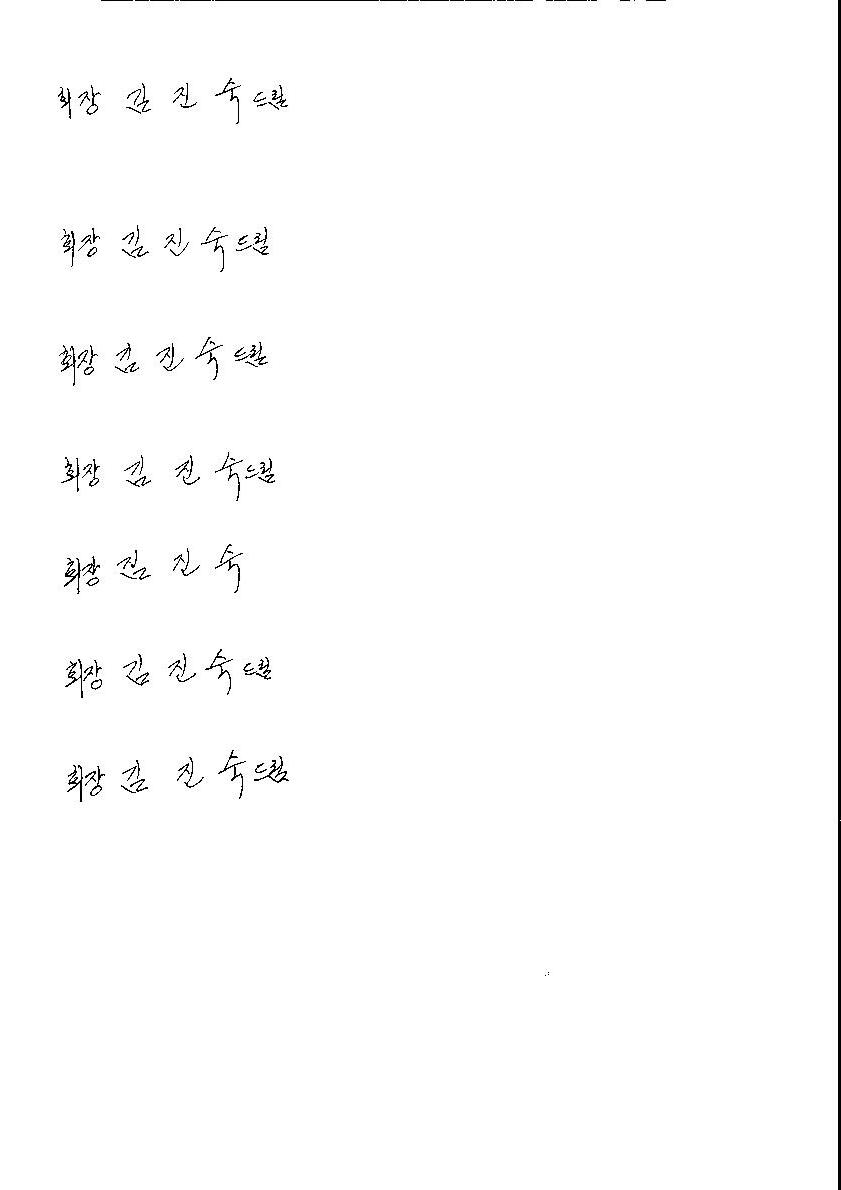 회장 김 진 숙 드림
회장 김 진 숙 드림
회장 김 진 숙 드림
회장 김 진 숙 드림
회장 김 진 숙
회장 김 진 숙 드림
회장 김 진 숙 드림